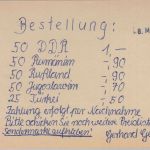 Bestellung:
50 DDR 1,—
50 Rumänien -,90
50 Rußland -,90
50 Jugoslawien -,70
25 Türkei -,50
Zahlung erfolgt per Nachnahme
Bitte schicken Sie noch weitere
Sondermarken
Gerhard